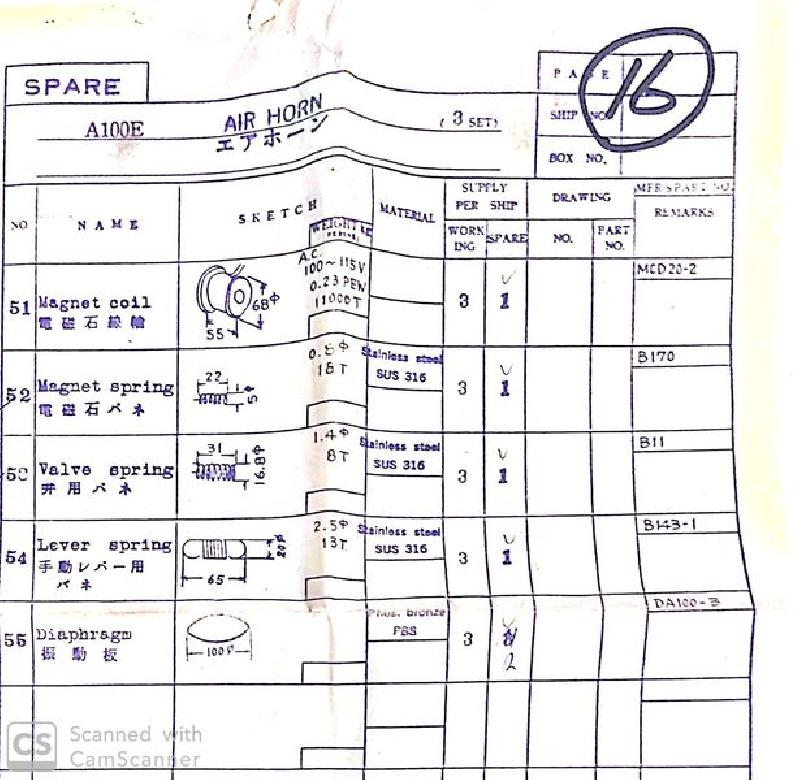 SPARE
PAGE 16
A100E
AIR HORN
エアホーン
(3 SET)
SHIP NO.
BOX NO.
NO
NAME
SKETCH
MATERIAL
SUPPLY
PER SHIP
WORK
ING
SPARE
DRAWING
NO.
PART
NO.
MFR'S PART NO.
REMARKS
51
Magnet coil
電磁石線輪
68φ
55
A.C.
100~115V
0.23 PEW
11000T
3
1
MCD20-2
52
Magnet spring
電磁石バネ
22
5φ
18T
Stainless steel
SUS 316
3
1
B170
Valve spring
弁用バネ
31
16.8φ
1.4φ
8T
Stainless steel
SUS 316
3
1
B11
54
Lever spring
手動レバー用
バネ
65
2.5φ
13T
Stainless steel
SUS 316
3
1
B143-1
55
Diaphragm
振動板
100φ
Phos. bronze
PBS
3
2
DA100-3
CS Scanned with
CamScanner